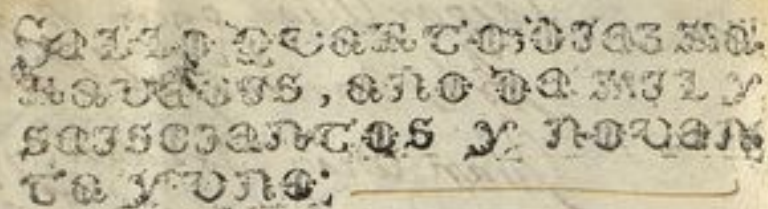 SELLO QVARTO, DIEZ MA
RAVEDIS, AÑO DE MIL Y
SEISCIENTOS Y NOVEN
TA Y VNO.